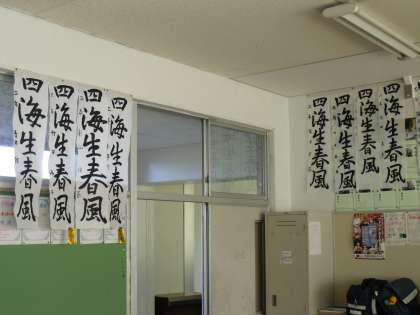 四海生春風
四海生春風
四海生春風
四海生春風
四海生春風
四海生春風
四海生春風
四海生春風